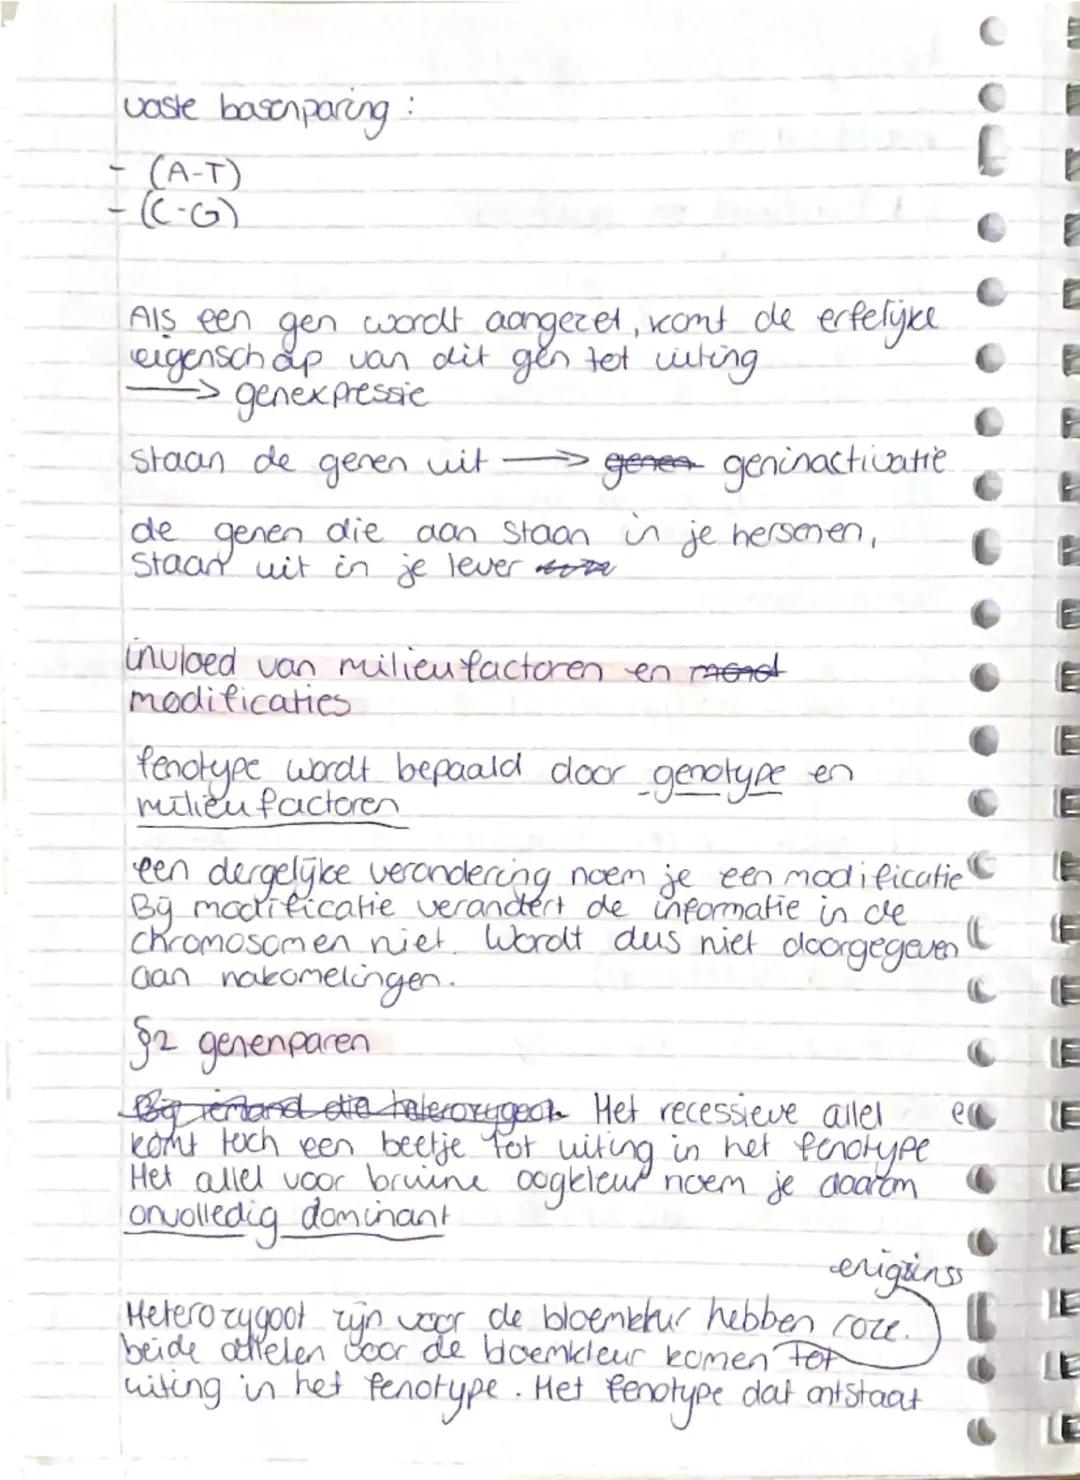 vaste basenparing :
- (A-T)
- (C-G)
Als een gen wordt aangezet, komt de erfelijke
eigenschap van dit gen tot uiting
→ genexpressie
staan de genen uit → genen geninactivatie
de genen die aan staan in je hersenen,
staan uit in je lever
invloed van milieufactoren en
modificaties
fenotype wordt bepaald door genotype en
milieufactoren
een dergelijke verandering noem je een modificatie
Bij modificatie verandert de informatie in de
chromosomen niet. Wordt dus niet doorgegeven
aan nakomelingen.
§2 genenparen
Bij iemand die heterozygoot Het recessieve allel
komt toch een beetje tot uiting in het fenotype
Het allel voor bruine oogkleur noem je daarom
onvolledig dominant
enigzinss
Heterozygoot zijn voor de bloemkleur hebben roze.
beide allelen voor de bloemkleur komen tot
uiting in het fenotype. Het fenotype dat ontstaat